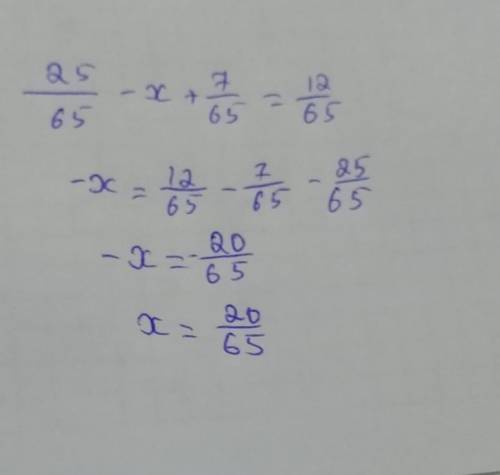 25/65 - x + 7/65 = 12/65
-x = 12/65 - 7/65 - 25/65
-x = -20/65
x = 20/65